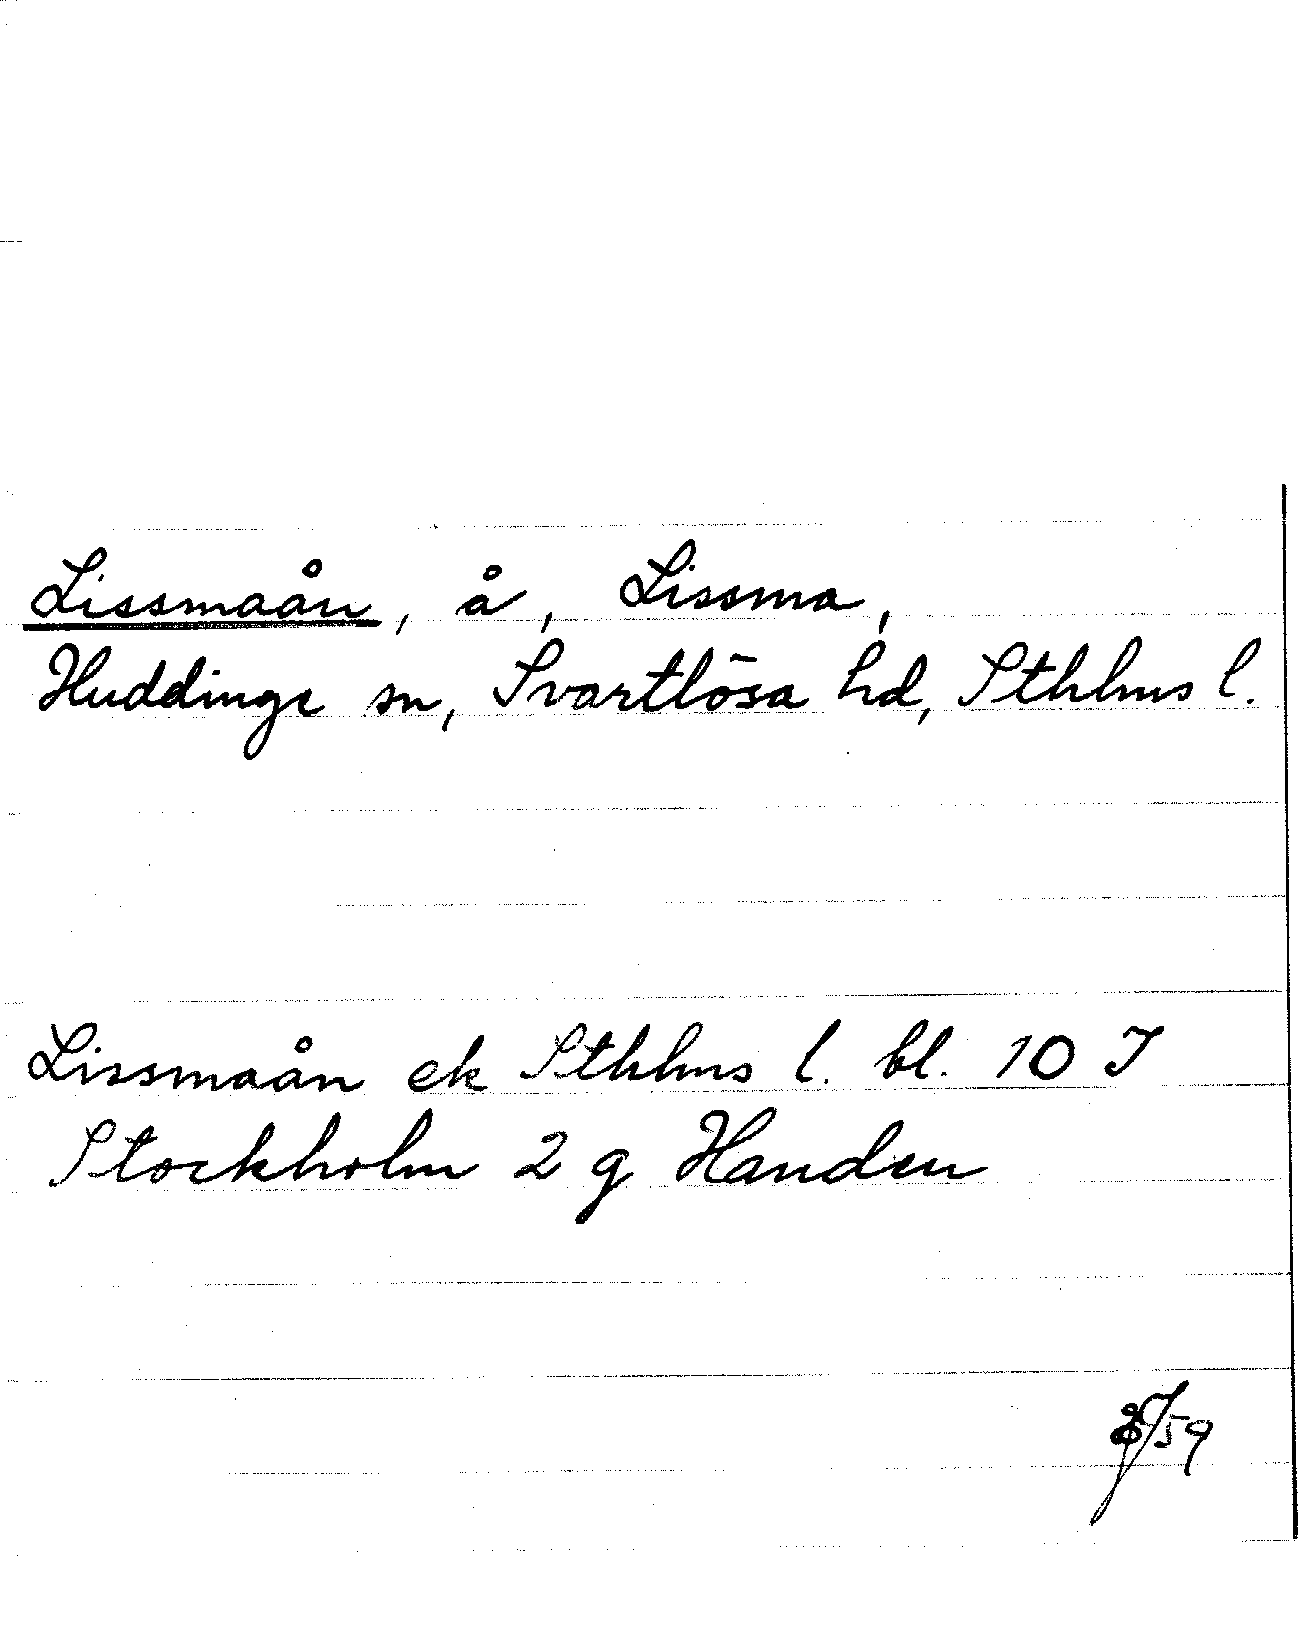 Lissmaån, å, Lissma,
Huddinge sn, Svartlösa hd, Sthlms l.
Lissmaån ek Sthlms l. bl. 10 I
Stockholm 2 g Handen